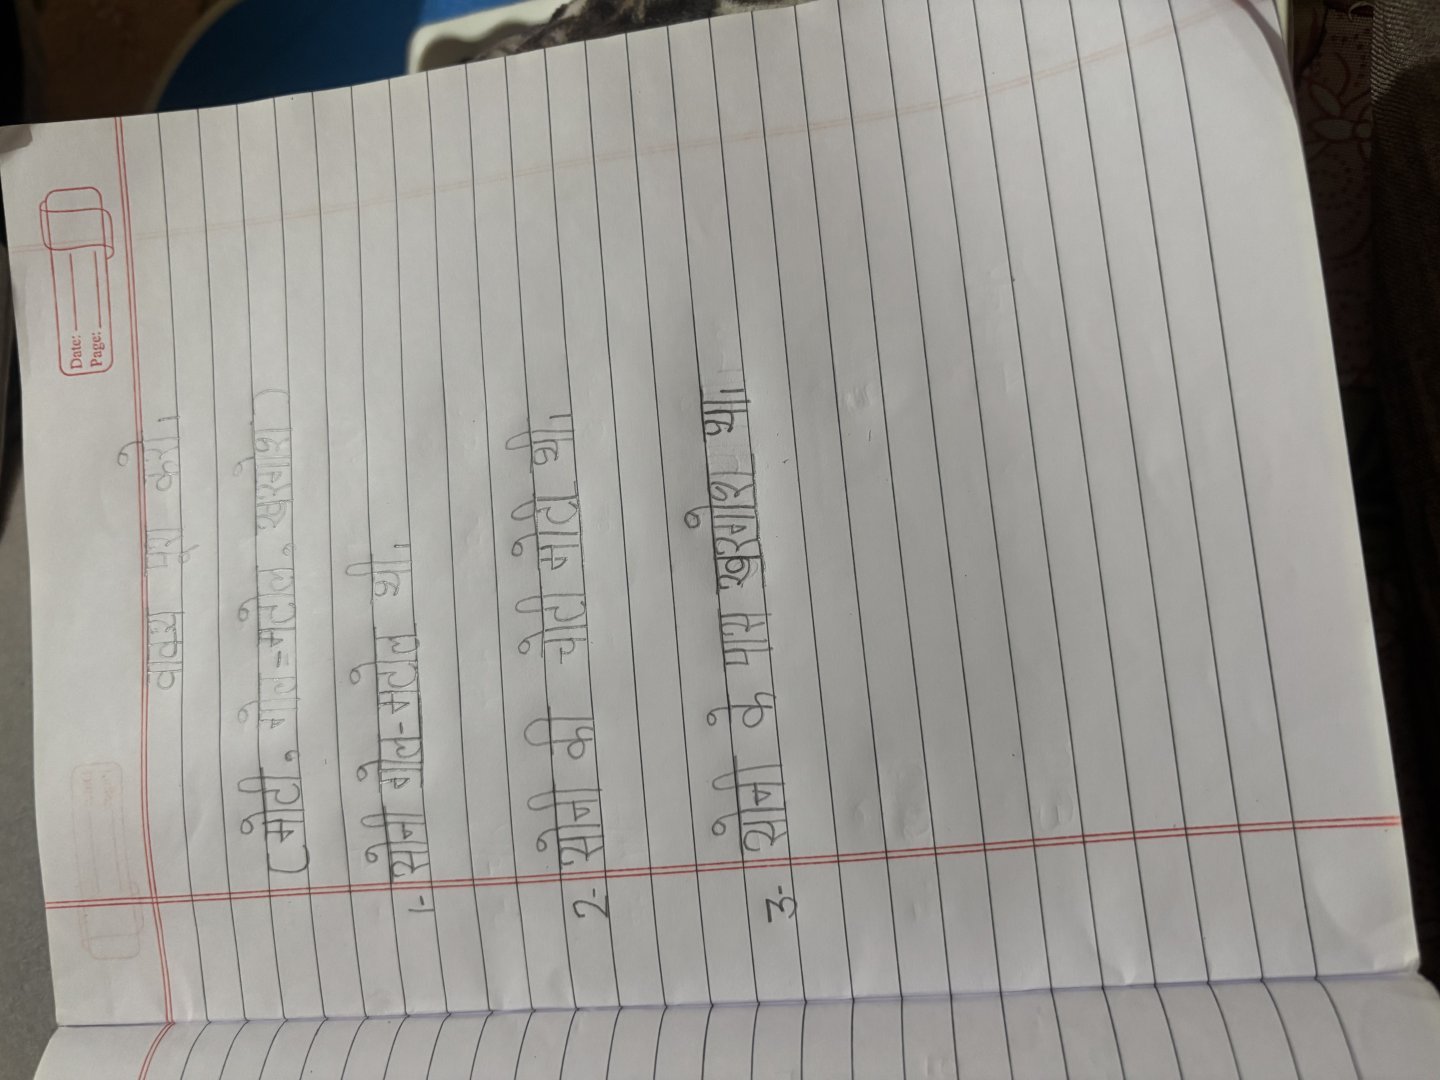 Date:
Page:
वाक्य पूरा करो।
(मोटी, गोल-मटोल, खरगोश)
1- सोनी गोल-मटोल थी।
2- सोनी की चोटी मोटी थी।
3- सोनी के पास खरगोश था।